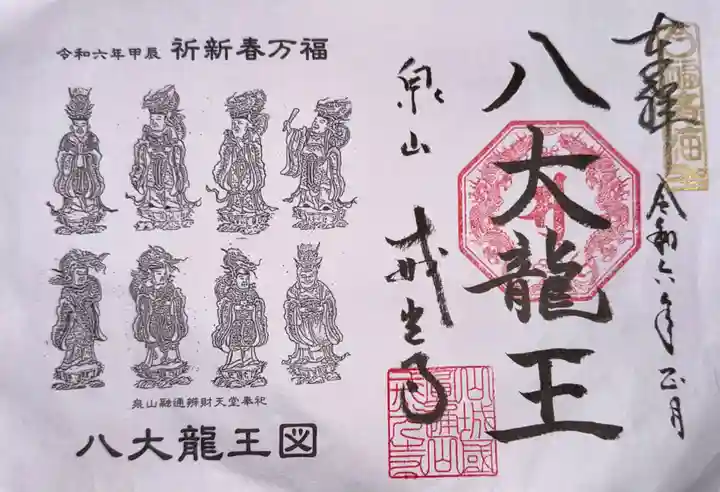 奉拝
令和六年正月
八大龍王
泉山
戒光寺
令和六年甲辰 祈新春万福
泉山融通辨財天堂奉祀
八大龍王図